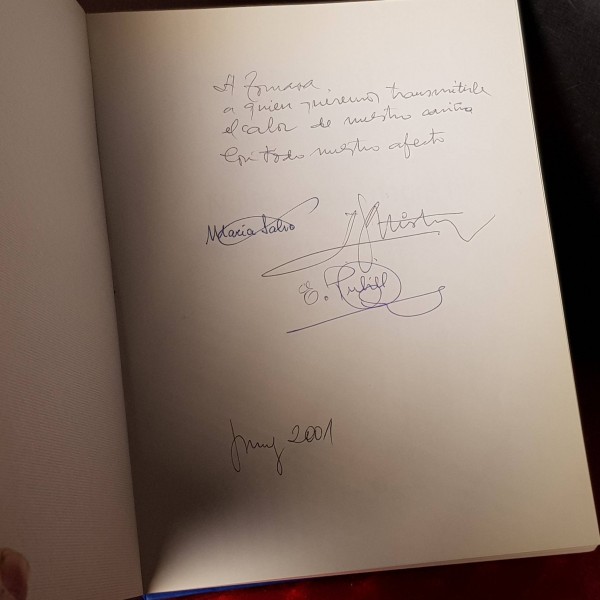 A Tomasa
a quien queremos transmitirle
el calor de nuestro cariño
Con todo nuestro afecto
Maria Salvo
E. Pubill
Juny 2001